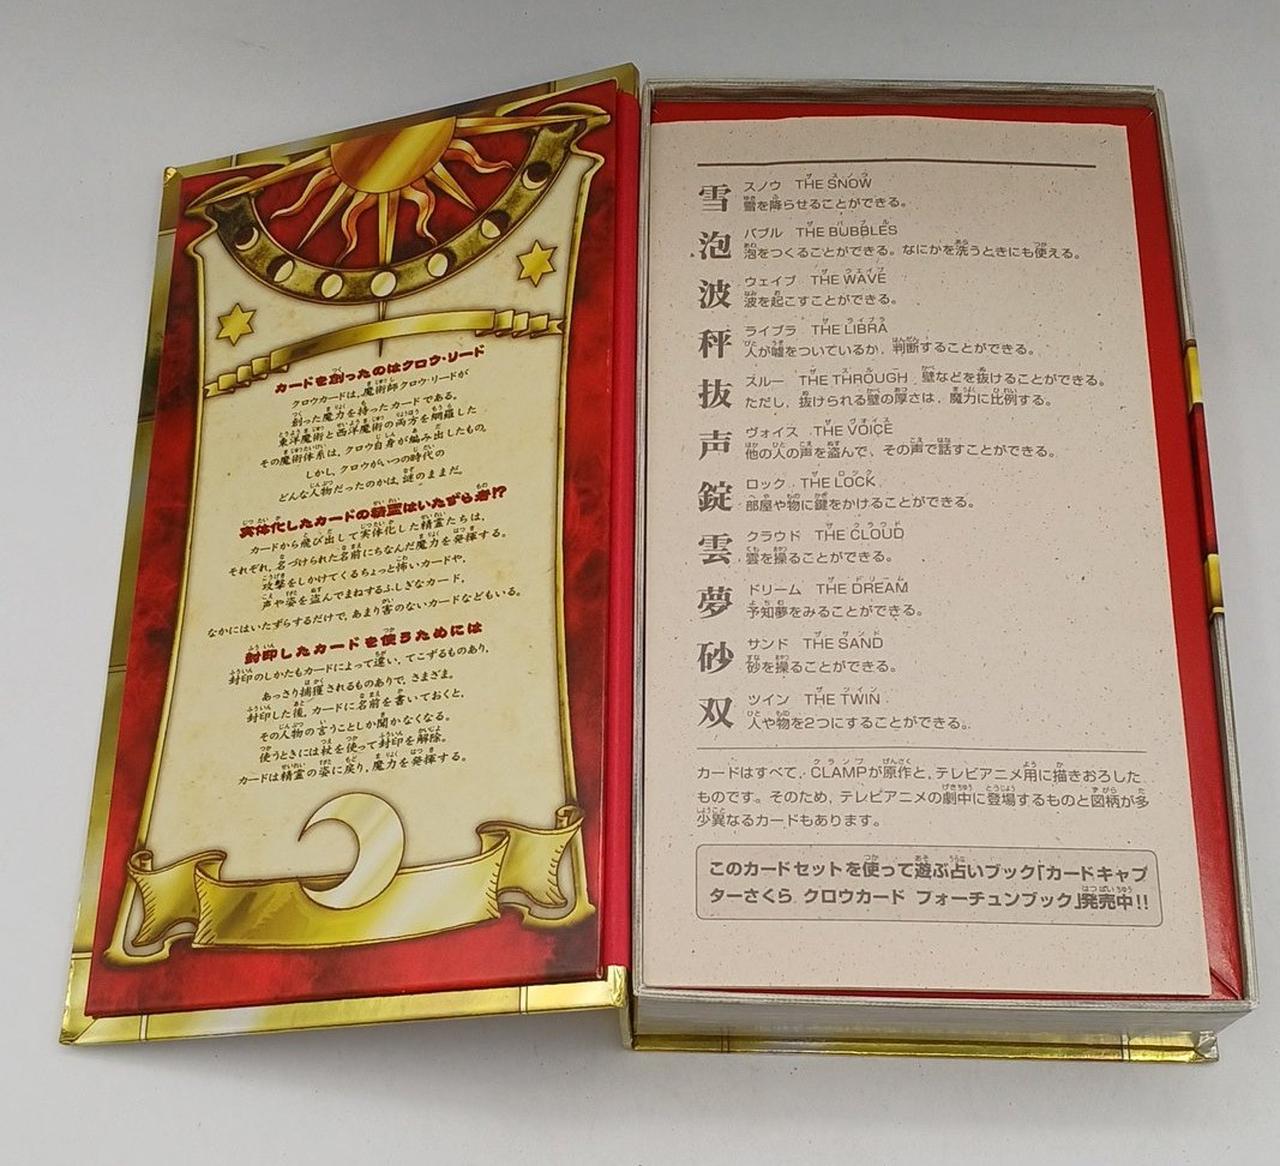 カードを創ったのはクロウ・リード
クロウカードは、魔術師クロウ・リードが
創った魔力を持ったカードである。
東洋魔術と西洋魔術の両方を網羅した
その魔術体系は、クロウ自身が編み出したもの。
しかし、クロウがいつの時代の
どんな人物だったのかは、謎のままだ。
実体化したカードの精霊はいたずら者!?
カードから飛び出して実体化した精霊たちは、
それぞれ、名づけられた名前にちなんだ魔力を発揮する。
攻撃をしかけてくるちょっと怖いカードや、
声や姿を盗んでまねするふしぎなカード、
なかにはいたずらするだけで、あまり害のないカードなどもいる。
封印したカードを使うためには
封印のしかたもカードによって違い、てこずるものあり、
あっさり捕獲されるものありで、さまざま。
封印した後、カードに名前を書いておくと、
その人物の言うことしか聞かなくなる。
使うときには杖を使って封印を解除。
カードは精霊の姿に戻り、魔力を発揮する。
雪 スノウ THE SNOW
雪を降らせることができる。
泡 バブル THE BUBBLES
泡をつくることができる。なにかを洗うときにも使える。
波 ウェイブ THE WAVE
波を起こすことができる。
秤 ライブラ THE LIBRA
人が嘘をついているか、判断することができる。
抜 スルー THE THROUGH 壁などを抜けることができる。
ただし、抜けられる壁の厚さは、魔力に比例する。
声 ヴォイス THE VOICE
他の人の声を盗んで、その声で話すことができる。
錠 ロック THE LOCK
部屋や物に鍵をかけることができる。
雲 クラウド THE CLOUD
雲を操ることができる。
夢 ドリーム THE DREAM
予知夢をみることができる。
砂 サンド THE SAND
砂を操ることができる。
双 ツイン THE TWIN
人や物を2つにすることができる。
カードはすべて、CLAMPが原作と、テレビアニメ用に描きおろした
ものです。そのため、テレビアニメの劇中に登場するものと図柄が多
少異なるカードもあります。
このカードセットを使って遊ぶ占いブック「カードキャプ
ターさくら クロウカード フォーチュンブック」発売中!!